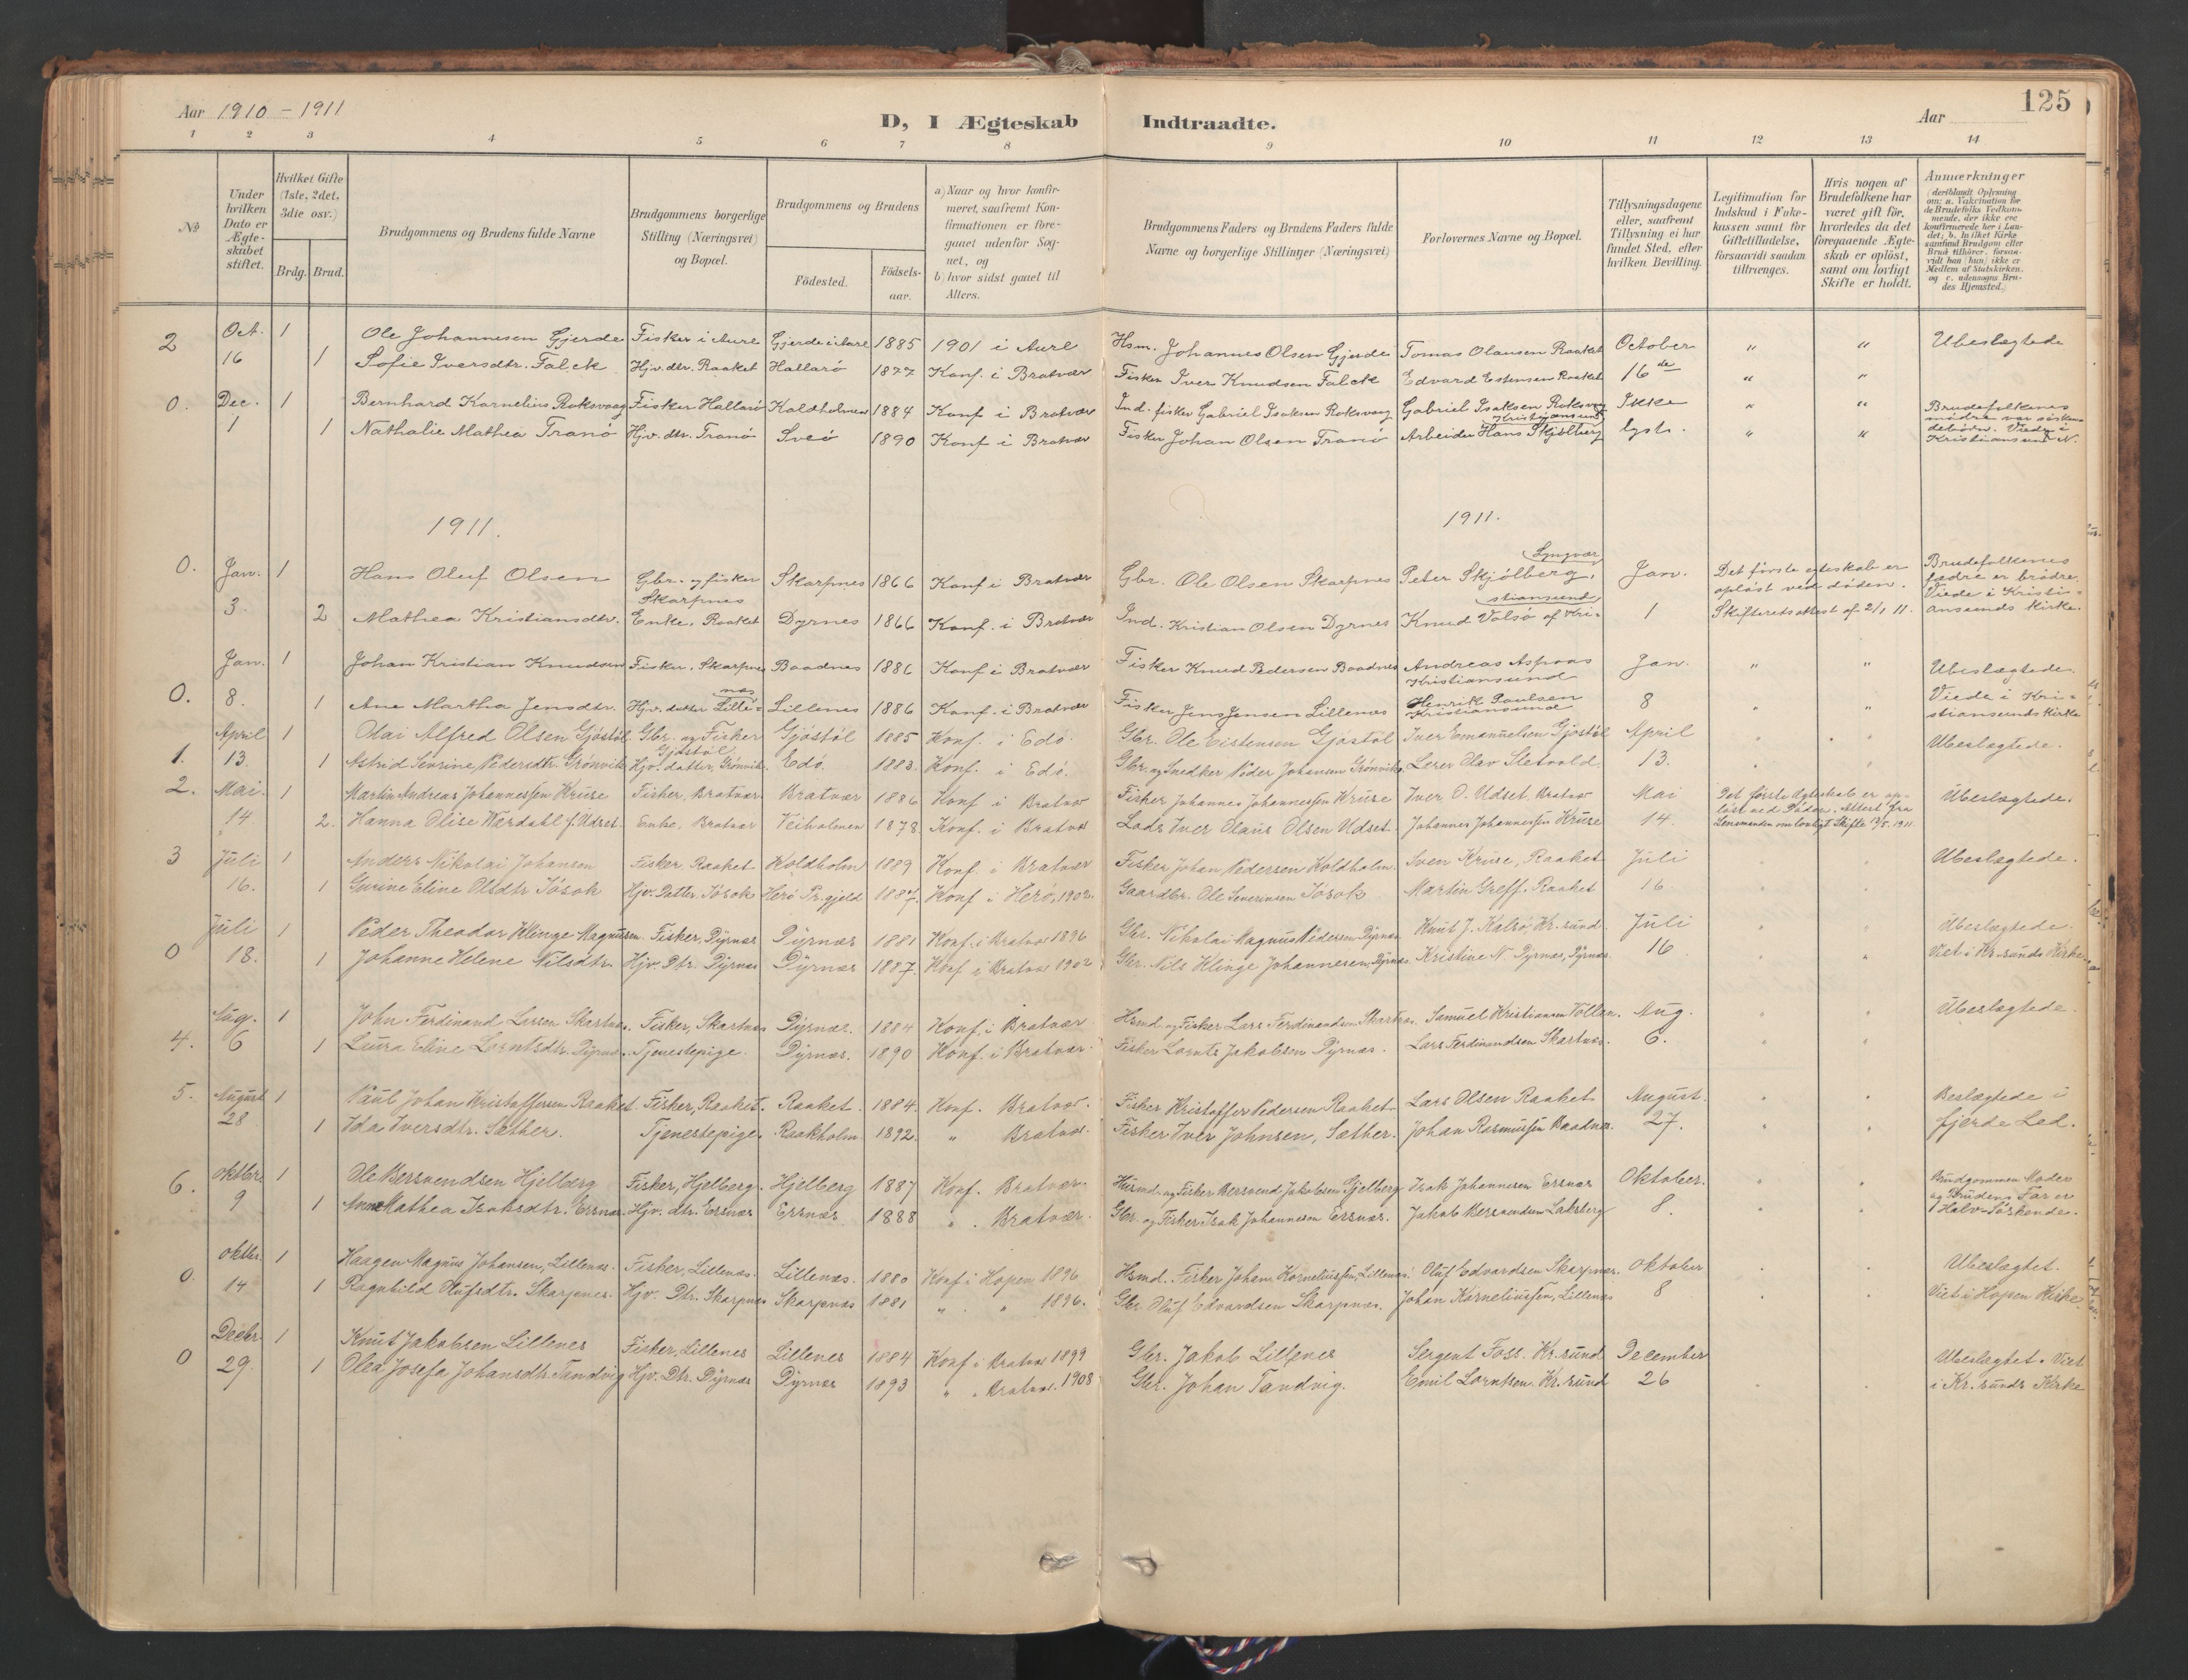 Aar 1910 - 1911
D, I Ægteskab Indtraadte.
Aar
125
1 2 3 4 5 6 7 8 9 10 11 12 13 14
No
Under hvilken Dato er Ægteskabet stiftet.
Hvilket Gifte (1ste, 2det, 3die osv.)
Brdg. Brud.
Brudgommens og Brudens fulde Navne
Brudgommens borgerlige Stilling (Næringsvei) og Bopæl.
Brudgommens og Brudens
Födested.
Födselsaar.
a) Naar og hvor konfirmeret, saafremt Konfirmationen er foregaaet udenfor Sognet, og
b) hvor sidst gaaet til Alters.
Brudgommens Faders og Brudens Faders fulde Navne og borgerlige Stillinger (Næringsvei)
Forlovernes Navne og Bopæl.
Tillysningsdagene eller, saafremt Tillysning ei har fundet Sted, efter hvilken Bevilling.
Legitimation for Indskud i Enkekassen samt for Giftetilladelse, forsaavidt saadan tiltrænges.
Hvis nogen af Brudefolkene har været gift för, hvorledes da det foregaaende Ægteskab er oplöst, samt om lovligt Skifte er holdt.
Anmærkninger
2 Oct. 1 Ole Johannesen Gjerde Fisker i Aure Gjerde i Aure 1885 1901 i Aure Hsm. Johannes Olsen Gjerde Tomas Olausen Raaket October " " Ubeslægtede
16 1 Sofie Iversdtr. Falck Hjv. dtr. Raaket Hallarö 1877 Konf. i Bratvær Fisker Iver Knudsen Falck Edvard Estensen Raaket 16de " "
0. Dec. 1 Bernhard Kornelius Roksvaag Fisker Hallarö Koldholmen 1884 Konf i Bratvær Ind. fisker Gabriel Isaksen Roksvaag Gabriel Isaksen Roksvaag Ikke " " Brudefolkenes mödre var söskendebörn. Viede i Kristiansund N.
1 1 Nathalie Mathea Tranö Hjv. dtr. Tranö Sveö 1890 Konf i Bratvær Fisker Johan Olsen Tranö Arbeider Hans Skjölberg Kristiansund lyst. " "
1911. 1911.
0. Jan. 1 Hans Oluf Olsen Gbr. og fisker Skarpnes Skarpnes 1866 Konf i Bratvær Gbr. Ole Olsen Skarpnes Peter Skjölberg, Lyngvær Jan. Det förste egteskab er oplöst ved döden. Brudefolkenes fædre er brödre. Viede i Kristiansunds kirke.
3. 2 Mathea Kristiansdtr. Enke, Raaket Dyrnes 1866 Konf. i Bratvær Ind. Kristian Olsen Dyrnes Knud Volsö af Kristiansund 1 Skifteretsattest af 2/1 11.
Jan. 1 Johan Kristian Knudsen Fisker, Skarpnes Baadnes 1886 Konf i Bratvær Fisker Knud Pedersen Baadnes Andreas Aspaas Kristiansund Jan. " " Ubeslægtede
0. 8. 1 Ane Martha Jensdtr. Hjv. datter Lillenæs Lillenes 1886 Konf. i Bratvær Fisker Jens Jensen Lillenæs Henrik Paulsen Kristiansund 8 " " Viede i Kristiansunds kirke
April 1 Olai Alfred Olsen Gjöstöl Gbr. og Fisker Gjöstöl Gjöstöl 1885 Konf. i Edö. Gbr. Ole Eistensen Gjöstöl Iver Emanuelsen Gjöstöl April Ubeslægtede.
1. 13. 1 Astrid Severine Pedersdtr. Grönvik Hjv. datter, Grönvik. Edö. 1883. Konf. i Edö. Gbr. og Snedker Peder Johansen Grönvik. Lærer Olav Sletvold. 13.
2. Mai. 1 Martin Andreas Johannessen Kruse Fisker, Bratvær. Bratvær 1886 Konf i Bratvær Fisker Johannes Johannessen Kruse Iver O. Udset, Bratvær Mai Det förste Ægteskab er oplöst ved Döden. Attest fra Lensmanden om lovligt Skifte 13/5. 1911 Ubeslægtede.
14. 2. Hanna Olise Werdahl f. Udset. Enke, Bratvær Veiholmen 1878. Konf. i Bratvær Lods Iver Olaus Olsen Udset. Johannes Johannessen Kruse 14.
3 Juli 1 Anders Nikolai Johansen Fisker Raaket Koldholm 1889 Konf. i Bratvær Fisker Johan Pedersen Koldholm. Sven Kruse, Raaket Juli Ubeslægtede.
16. 1 Gurine Eline Olsdtr Jösok Hjv. Datter, Jösok Herö Pr.gjeld 1887. Konf i Herö, 1902. Gaardbr. Ole Severinsen Jösok Martin Greff. Raaket 16
Juli 1 Peder Theodor Klinge Magnusen Fisker, Dyrnæs Dyrnæs 1881 Konf. i Bratvær 1896 Gbr. Nikolai Magnus Pedersen Dyrnæs Knut J. Kalsö, Kr.sund. Juli Ubeslægtede.
0 18. 1 Johanne Helene Nilsdtr. Hjv. Dtr. Dyrnæs Dyrnæs 1887. Konf i Bratvær 1902 Gbr. Nils Klinge Johannesen, Dyrnæs. Kristine N. Dyrnæs, Dyrnæs. 16 Viet i Kr.sunds Kirke.
Aug. 1 John Ferdinand Larsen Skartnæs. Fisker, Skartnæs Dyrnæs. 1884 Konf. i Bratvær Hsmd. og Fisker Lars Ferdinandsen Skartnæs. Samuel Kristiansen Vollan. Aug. Ubeslægtede.
4. 6 1 Laura Eline Lorntsdtr. Dyrnæs. Tjenestepige. Dyrnæs. 1890 Konf. i Bratvær. Fisker Lornts Jakobsen Dyrnæs. Lars Ferdinandsen Skartnæs. 6.
5. August 1 Paul Johan Kristoffersen Raaket. Fisker, Raaket. Raaket. 1884. Konf. Bratvær. Fisker Kristoffer Pedersen Raaket Lars Olsen Raaket August. Beslægtede i fjerde Led.
28 1 Ida Iversdtr. Sæther. Tjenestepige. Raakholm 1892. " Bratvær. Fisker Iver Johnsen, Sæther. Johan Rasmussen Baadnæs. 27.
6. Oktbr. 1 Ole Bersvendsen Hjelberg Fisker, Hjelberg. Hjelberg 1887 Konf. Bratvær. Husmd. og Fisker Bersvend Jakobsen Hjelberg Isak Johannesen Ersnæs Oktober. Brudgommen Moder og Brudens Far er Halv-Söskende.
9 1 Anne Mathea Isaksdtr. Ersnæs. Hjv. dtr. Ersnæs Ersnæs 1888 " Bratvær. Gbr. og Fisker Isak Johannesen Ersnæs. Jakob Bersvendsen Laksberg 8.
Oktbr. 1 Haagen Magnus Johansen, Lillenæs. Fisker, Lillenæs. Lillenæs. 1880 Konf i Hopen 1896 Hsmd. Fisker Johan Korneliussen, Lillenæs. Oluf Edvardsen Skarpnæs. Oktober Ubeslægtet.
0. 14 1 Ragnhild Olufsdtr. Skarpnes. Hjv. Dtr. Skarpnæs Skarpnæs 1881 " " 1896. Gbr. Oluf Edvardsen Skarpnæs. Johan Korneliussen, Lillenæs 8 Viet i Hopen Kirke.
Decbr. 1 Knut Jakobsen Lillenes Fisker, Lillenes Lillenes 1884 Konf i Bratvær 1899 Gbr. Jakob Lillenes Sergent Foss. Kr.sund December Ubeslægtet. Viet i Kr.sunds Kirke
0 29. 1 Olea Josefa Johansdtr. Tandvig Hjv. Dtr. Dyrnæs Dyrnæs 1893 " Bratvær. 1908 Gbr. Johan Tandvig. Emil Lorntsen. Kr.sund 26